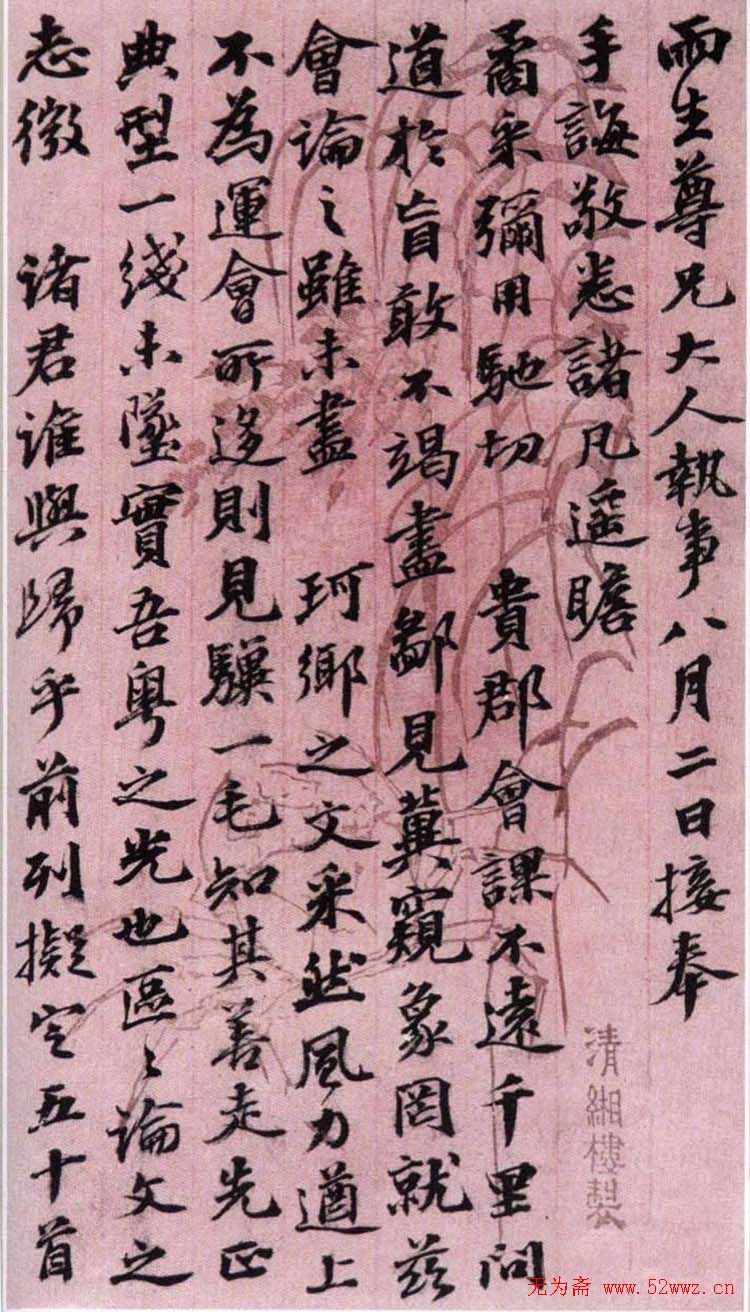 雨生尊兄大人執事八月二日接奉
手誨敬悉諸凡遥瞻
矞采彌用馳切　貴郡會課不遠千里問
道於盲敢不竭盡鄙見冀窺象罔就茲
會論之雖未盡　珂鄉之文采然風力遒上
不為運會所逐則見驥一毛知其善走先正
典型一綫未墜實吾粵之光也區〻論文之
志微　諸君誰與歸乎前列擬定五十首
清緗樓製
无为斋 www.52wwz.cn